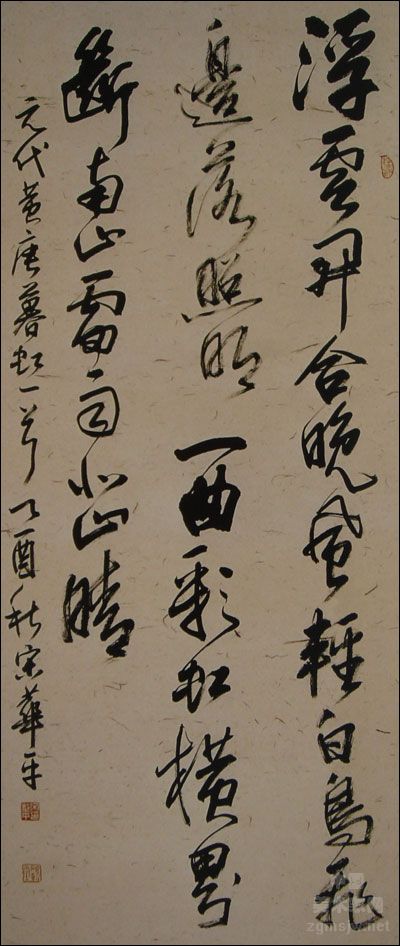 浮雲開合晚風輕白鳥飛
邊落照明一曲彩虹橫界
斷南山雷雨北山晴
元代黃庚暮虹一首乙酉秋宋華平
zgmsjw.net